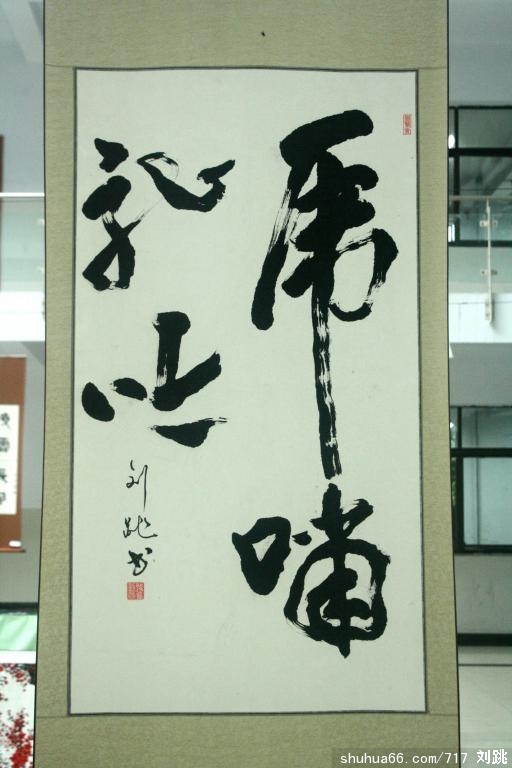 虎嘯
龍吟
刘跳书
shuhua66.com/717 刘跳